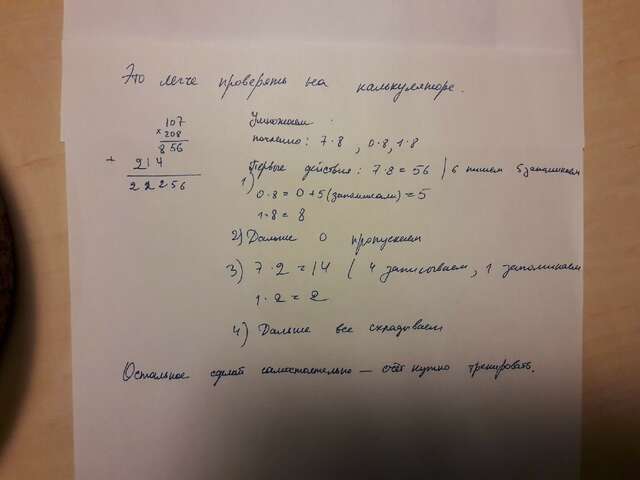 Это легче проверять на калькуляторе.
107
× 208
856
+ 214
22256
Умножаем
почленно: 7·8, 0·8, 1·8
Первые действия: 7·8=56 / 6 пишем 5 запоминаем
1)
0·8=0+5(запоминали)=5
1·8=8
2) Дальше 0 пропускаем
3) 7·2=14 / 4 записываем, 1 запоминаем
1·2=2
4) Дальше все складываем
Остальное сделай самостоятельно – счёт нужно тренировать.